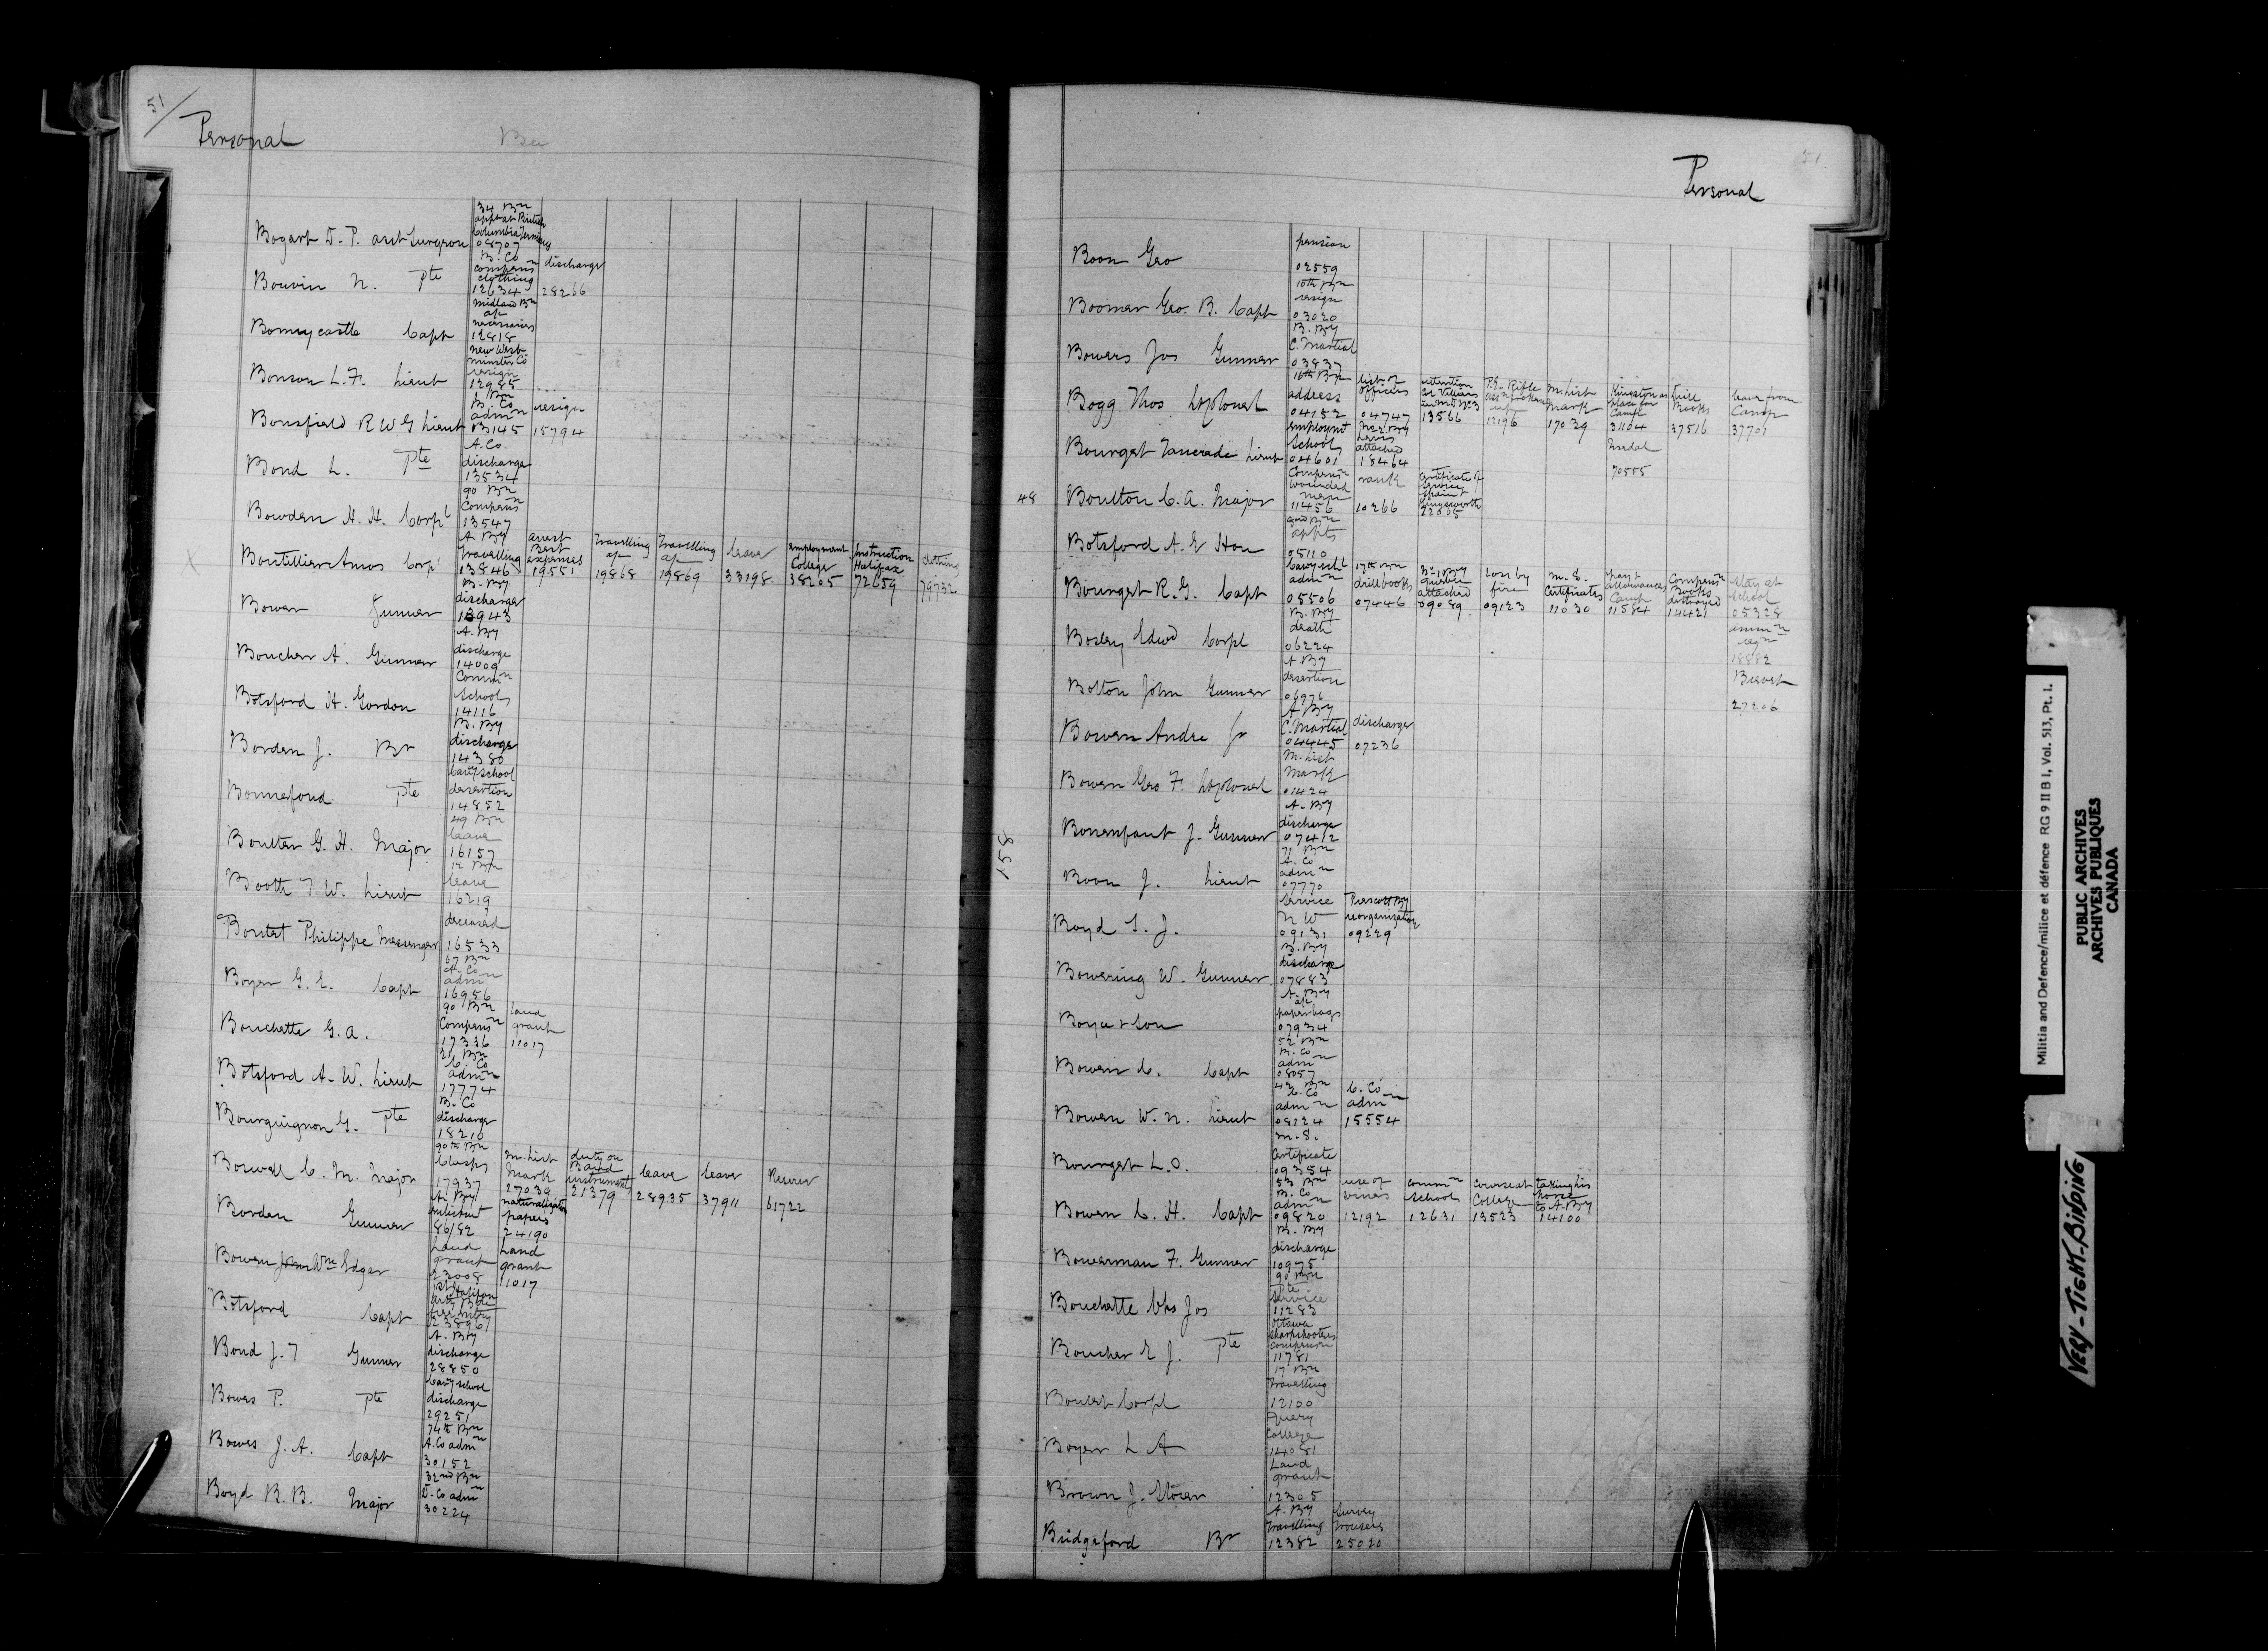 51
Personal
34 Bn
appt at British
Columbia
Bogart D. P. asst Surgeon 08707
B. Co
compensn discharge
clothing
Boivin N. Pte 12634 28266
Midland Bn
a/c
necessaries
Bonnycastle Capt 12818
New West-
minster Co
resign
Bonson L. F. Lieut 12985
1 Bn
B. Co
admn resign
Bonsfield R W G Lieut B145 15794
A. Co
discharge
Bond L. Pte 13534
90 Bn
Compensn
Bowden H. H. Corpl 13547
A By arrest
travelling Best travelling travelling leave employment Instruction clothing
expenses a/c a/c College Halifax
Boutillier Amos Corpl 13846 19551 19868 19869 33198 38265 72659 79732
B. By
discharge
Bower Gunner 13943
A. By
discharge
Boucher A. Gunner 14009
Commn
Schools
Botsford H. Gordon 14116
B. By
discharge
Borden J. Br 14380
Cavy School
desertion
Bonnefond Pte 14852
49 Bn
leave
Boulter G. H. Major 16157
12 Bn
leave
Booth T W. Lieut 16219
deceased
Boutet Philippe Messenger 16533
67 Bn
A. Co
admn
Boyer G. E. Capt 16956
90 Bn land
Compensn grant
Bouchette G. A. 17336 11017
21 Bn
C. Co
admn
Botsford A. W. Lieut 17774
B. Co
discharge
Bourguignon G. Pte 18210
90th Bn
Clasps M. List duty on leave leave Reserve
Mark Band
instruments
Boswell C. M. Major 17937 27039 21379 28935 37911 61722
A. By naturalization
enlistment papers
Borden Gunner 86182 24190
Land Land
grant grant
Bowen Wm Edgar 23008 11017
1st Halifax
Botsford Capt 23896
A. By
discharge
Bond J. T Gunner 28850
Cavy School
discharge
Bowes P. Pte 29251
74th Bn
A. Co admn
Bowes J. A. Capt 30152
32nd Bn
D. Co admn
Boyd R. B. Major 30224
51
Personal
pension
Boon Geo 02559
10th Bn
resign
Boomer Geo. B. Capt 03020
B. By
C. Martial
Bowers Jos Gunner 03837
16th Bn list of retention P.E. Rifle M. List Kingston as Drill leave from
address officers Col Villiers Assn Mark place for Books Camp
in MD No 3 Camp
Bogg Thos Lt Colonel 04152 04747 13566 12196 17039 31104 37516 37701
employmt No 2 By Medal
School Lévis
attached
Bourget Tancrede Lieut 04601 18464 70555
Compensn rank certificate of
wounded service
men
48 Boulton C. A. Major 11456 10266 22005
appts
Botsford A. E Hon 05110
Cavy Schl 17th Bn No 1 By loss by M. S. pay & Compensn stay at
admn drill books Quebec fire Certificates allowances Books School
attached Camp destroyed
Bourget R. G. Capt 05506 07446 09089 09123 11030 11584 14421 05328
B. By
death
Bosley Edwd Corpl 06224 18882
A By Brevet
desertion
Bolton John Gunner 06976 27206
A By
C. Martial discharge
Bowen Andre Jr 04445 07236
M. List
Mark
Bowen Geo F. Lt Colonel 01424
A. By
discharge
158 Bonenfant J. Gunner 07412
71 Bn
A. Co
admn
Boon J. Lieut 07770
Service Prescott By
N W reorganization
Boyd S. J. 09131 09229
B. By
discharge
Bowering W. Gunner 07883
A. By
a/c
paper bags
Boyce & Son 07934
52 Bn
B. Co
admn
Bowen C. Capt 08057
42 Bn C. Co
C. Co admn
admn
Bowen W. N. Lieut 08124 15554
M. S.
Certificate
Bourget L. O. 09354
53 Bn use of commn course at taking his
B. Co schools College horse
admn to A. By
Bowen C. H. Capt 09820 12192 12631 13523 14100
B. By
discharge
Bowerman F. Gunner 10975
90 Bn
Pte
Service
Bouchette Chs Jos 11283
Ottawa
Sharpshooters
compension
Boucher E J. Pte 11781
17 Bn
travelling
Boutet Corpl 12100
Query
College
Boyer L A 12081
Land
grant
Brown J. Storer 12305
A. By Survey
travelling trousers
Bridgeford Br 12382 25020
Militia and Defence/milice et défence RG 9 II B 1, Vol. 513, Pt. 1.
PUBLIC ARCHIVES
ARCHIVES PUBLIQUES
CANADA
VERY-TIGHT-BINDING